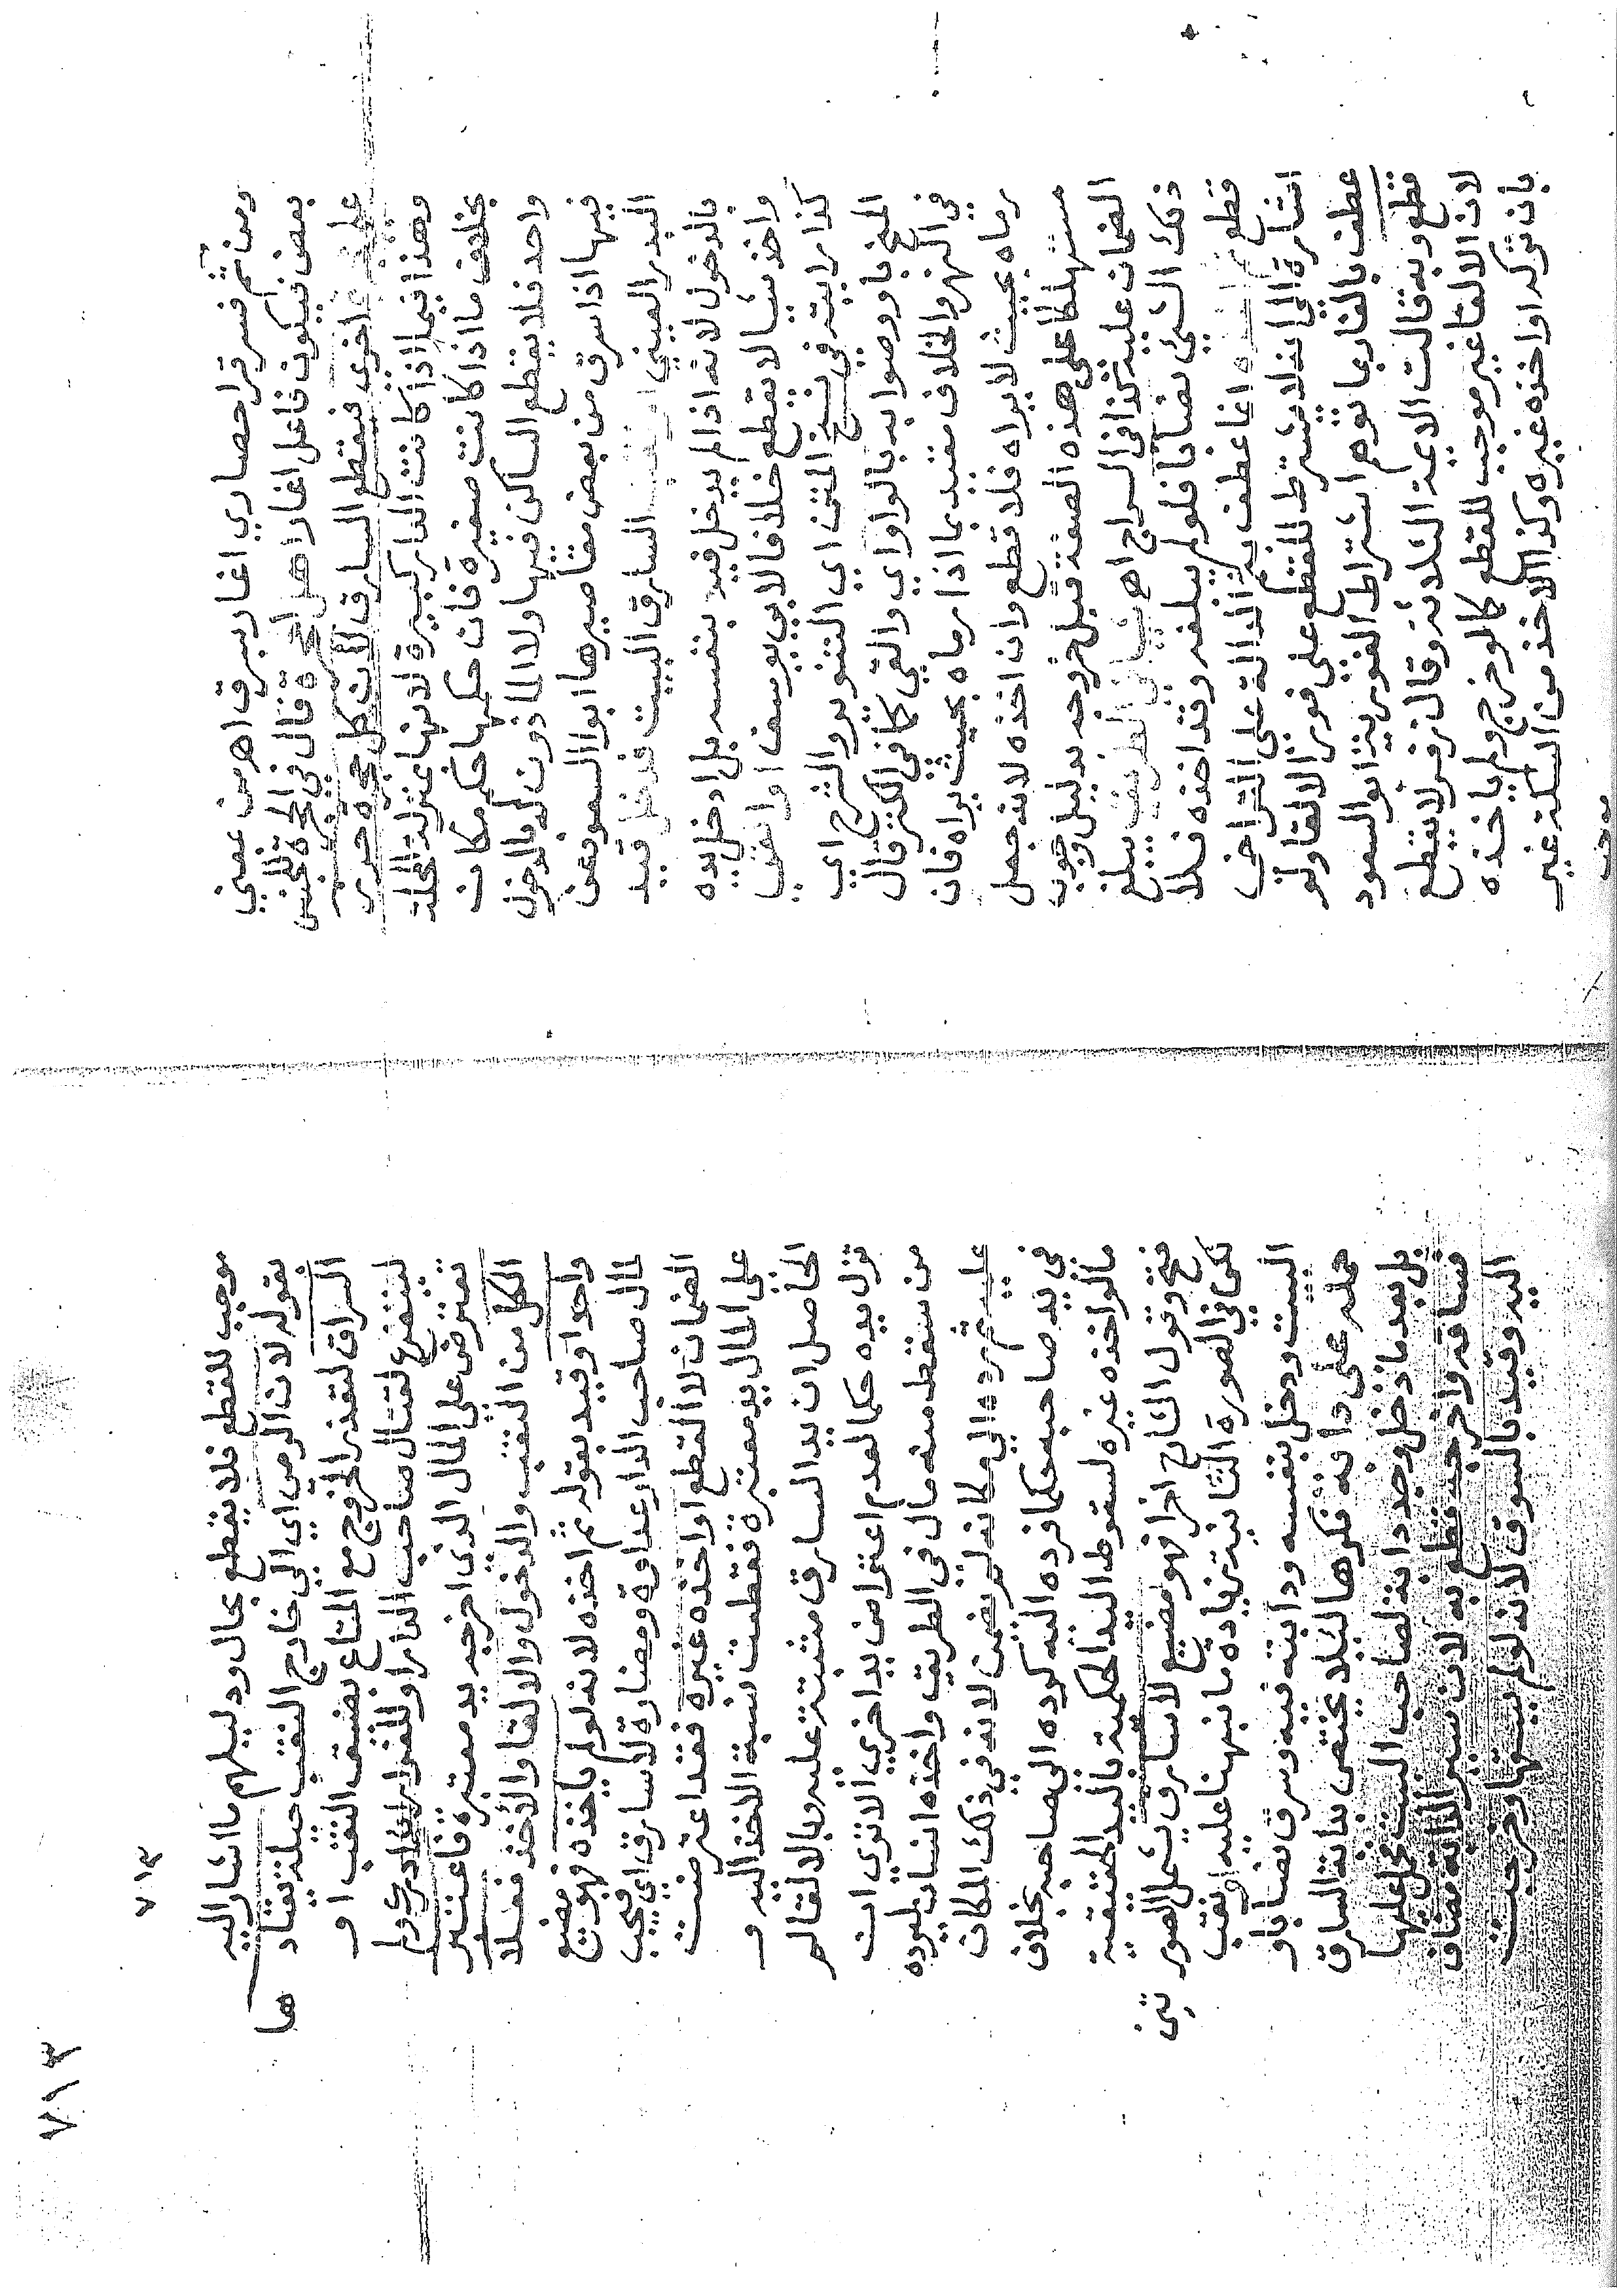 ومن ثم فسر قراحصاري اغار بسرق اهـ من عمني
بعض فيكون فاعل اغار اهل الحجرة قال في الحجرة المعنى
على حجرة اخرى فيقطع السارق لان كل حجرة حرز
وهذا فيما اذا كانت الدار كبيرة لانها بمنزلة المحلة
بخلاف ما اذا كانت صغيرة فان حكمها حكم مكان
واحد فلا يقطع الساكن فيها ولا الماذون له بالدخول
فيها اذا سرق من بعض مقاصيرها ابو السعود عن
البدر العيني السارق البيت فدخل قيد
بالدخول لانه اذا لم يدخل فيه بنفسه بل ادخل يده
واخذ شيا لا يقطع خلافا لابي يوسف او القى
كذا رايته في نسخ المتن اي التنوير والشرح اي
المنح باو وصوابه بالواو اي والقى كما في الكنز قال
في النهر والخلاف مقيد بما اذا رماه بحيث يراه فان
رماه بحيث لا يراه فلا قطع وان اخذه لانه جعل
مستهلكا على هذه الصفة قبل خروجه بدليل وجوب
الضمان عليه كذا في السراج اهـ شيا في الطريق يبلغ
ذلك الشئ نصابا فلو لم يبلغه وقد اخذه فلا
قطع ثم اخذه انما عطف بثم الدالة على التراخي
اشارة الى انه لا يشترط للقطع على فور الالقا ولو
عطف بالفا ربما توهم اشتراط الفورية ابو السعود
قطع وبه قالت الائمة الثلاثة وقال زفر لا يقطع
لان الالقا غير موجب للقطع كما لو خرج ولم ياخذه
بان تركه او اخذه غيره وكذا الاخذ من السكة غير
موجب
٧١٣
٧١٣
موجب للقطع فلا يقطع بحال ودليلهم ما اشار اليه
بقوله لان الرمي اي الى خارج النقب حيلة يعتادها
السراق لتعذر الخروج مع المتاع بضيق النقب او
ليتفرغ لقتال صاحب الدار او للفرار ان ادرك ولم
تعترض على المال الذي اخرجه يد معتبرة فاعتبر
الكل من النقب والدخول والالقا والاخذ فعلا
واحدا وقيد بقوله ثم اخذه لانه لو لم ياخذه فهو مضيع
لمال صاحب الدار عداوة ومضارة لا سارق اي فيجب
الضمان لا القطع او اخذه غيره فقد اعترضت
على المال يد معتبرة فقطعت نسبة الاخذ اليه و
الحاصل ان يد السارق مثبتة عليه وبالالقا لم
تزل يده حكما لعدم اعتراض يد اخرى الا ترى ان
من سقط منه مال في الطريق واخذه انسان ليرده
عليه ثم رده الى مكانه لم يضمن لانه في ذلك المكان
في يد صاحبه حكما فرده اليه كرده الى صاحبه بخلاف
ما لو اخذه غيره لسقوط اليد الحكمية باليد الحقيقية
فتح وقول الشارح اخرا فهو مضيع لا سارق يشمل الصورتين
لكن في الصورة الثانية زيادة ما نبهنا عليه او نقب
البيت ودخل بنفسه ودابته فيه وسرق نصابا و
حمله على دابته ذكرها لئلا يختص بدابة السارق
بل بعد ما دخل وجد دابة لصاحب البيت حمل عليها
فساقه واخرجه قطع به لان سير الدابة مضاف
اليه وقيد بالسوق لانه لو لم يسقها وخرجت